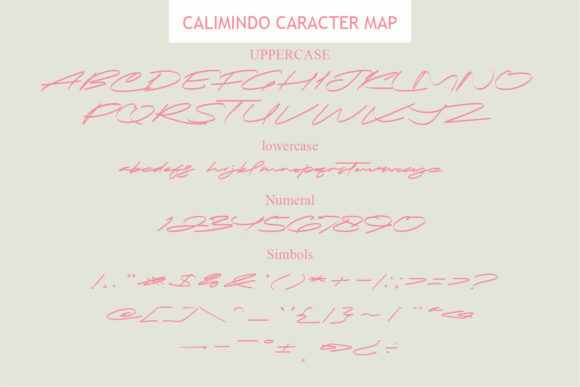 CALIMINDO CARACTER MAP
UPPERCASE
ABCDEFGHIJKLMNO
PQRSTUVWXYZ
lowercase
abcdefg hijklmnopqrstuvwxyz
Numeral
1234567890
Simbols
!,."#$%&'()*+-/:;>=>?
@[]\^_`{|}~